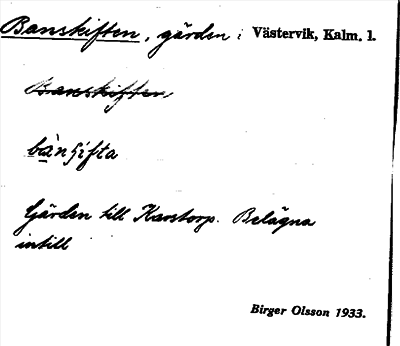 Banskiften, gärden i Västervik, Kalm. l.
Banskiften
bànʃifta
Gärden till Karstorp. Belägna
intill
Birger Olsson 1933.